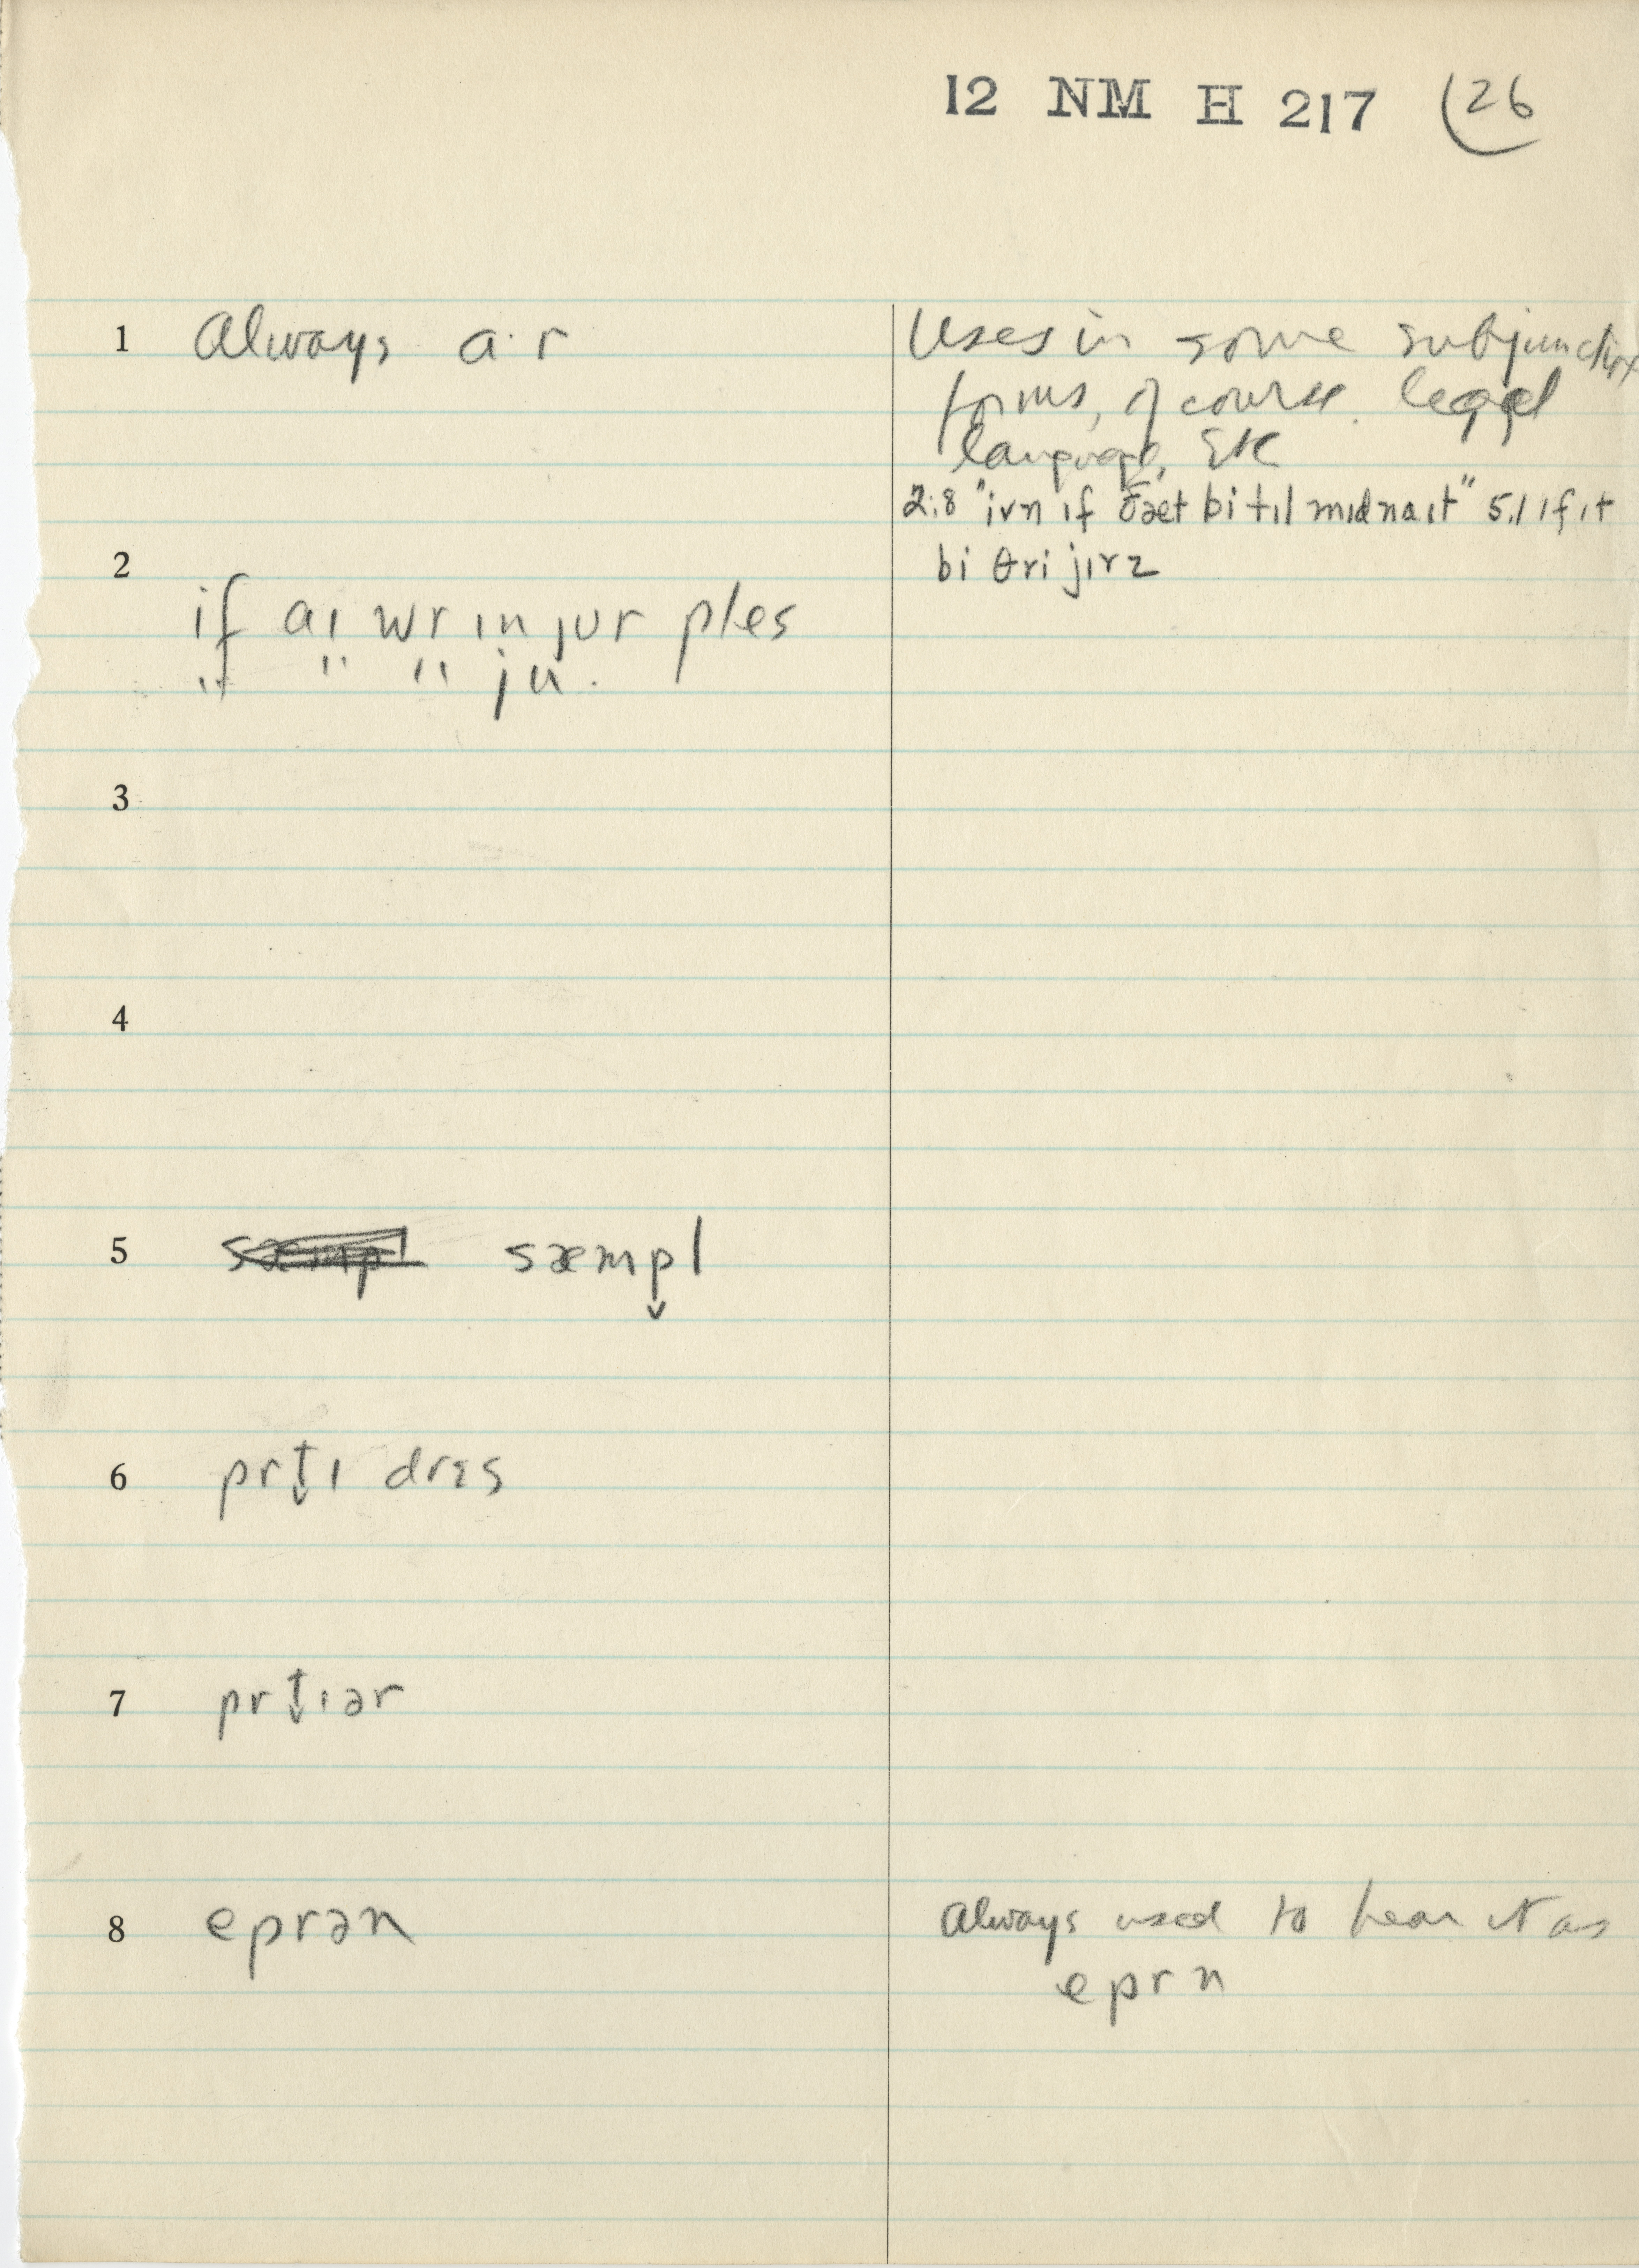 12 NM H 217 (26
1 Always a·r
Uses in some subjunctive
forms, of course legal
language, Etc
2:8 "ivn ɪf ðæt bi tɪl mɪdnaɪt" 5.1 ɪf ɪt
bi θri jɪrz
2
if aɪ wr ɪn jʊr ples
if " " ju.
3
4
5 sæmpl
6 prt̬ɪ drɛs
7 prt̬ɪər
8 eprən
Always used to hear it as
eprn